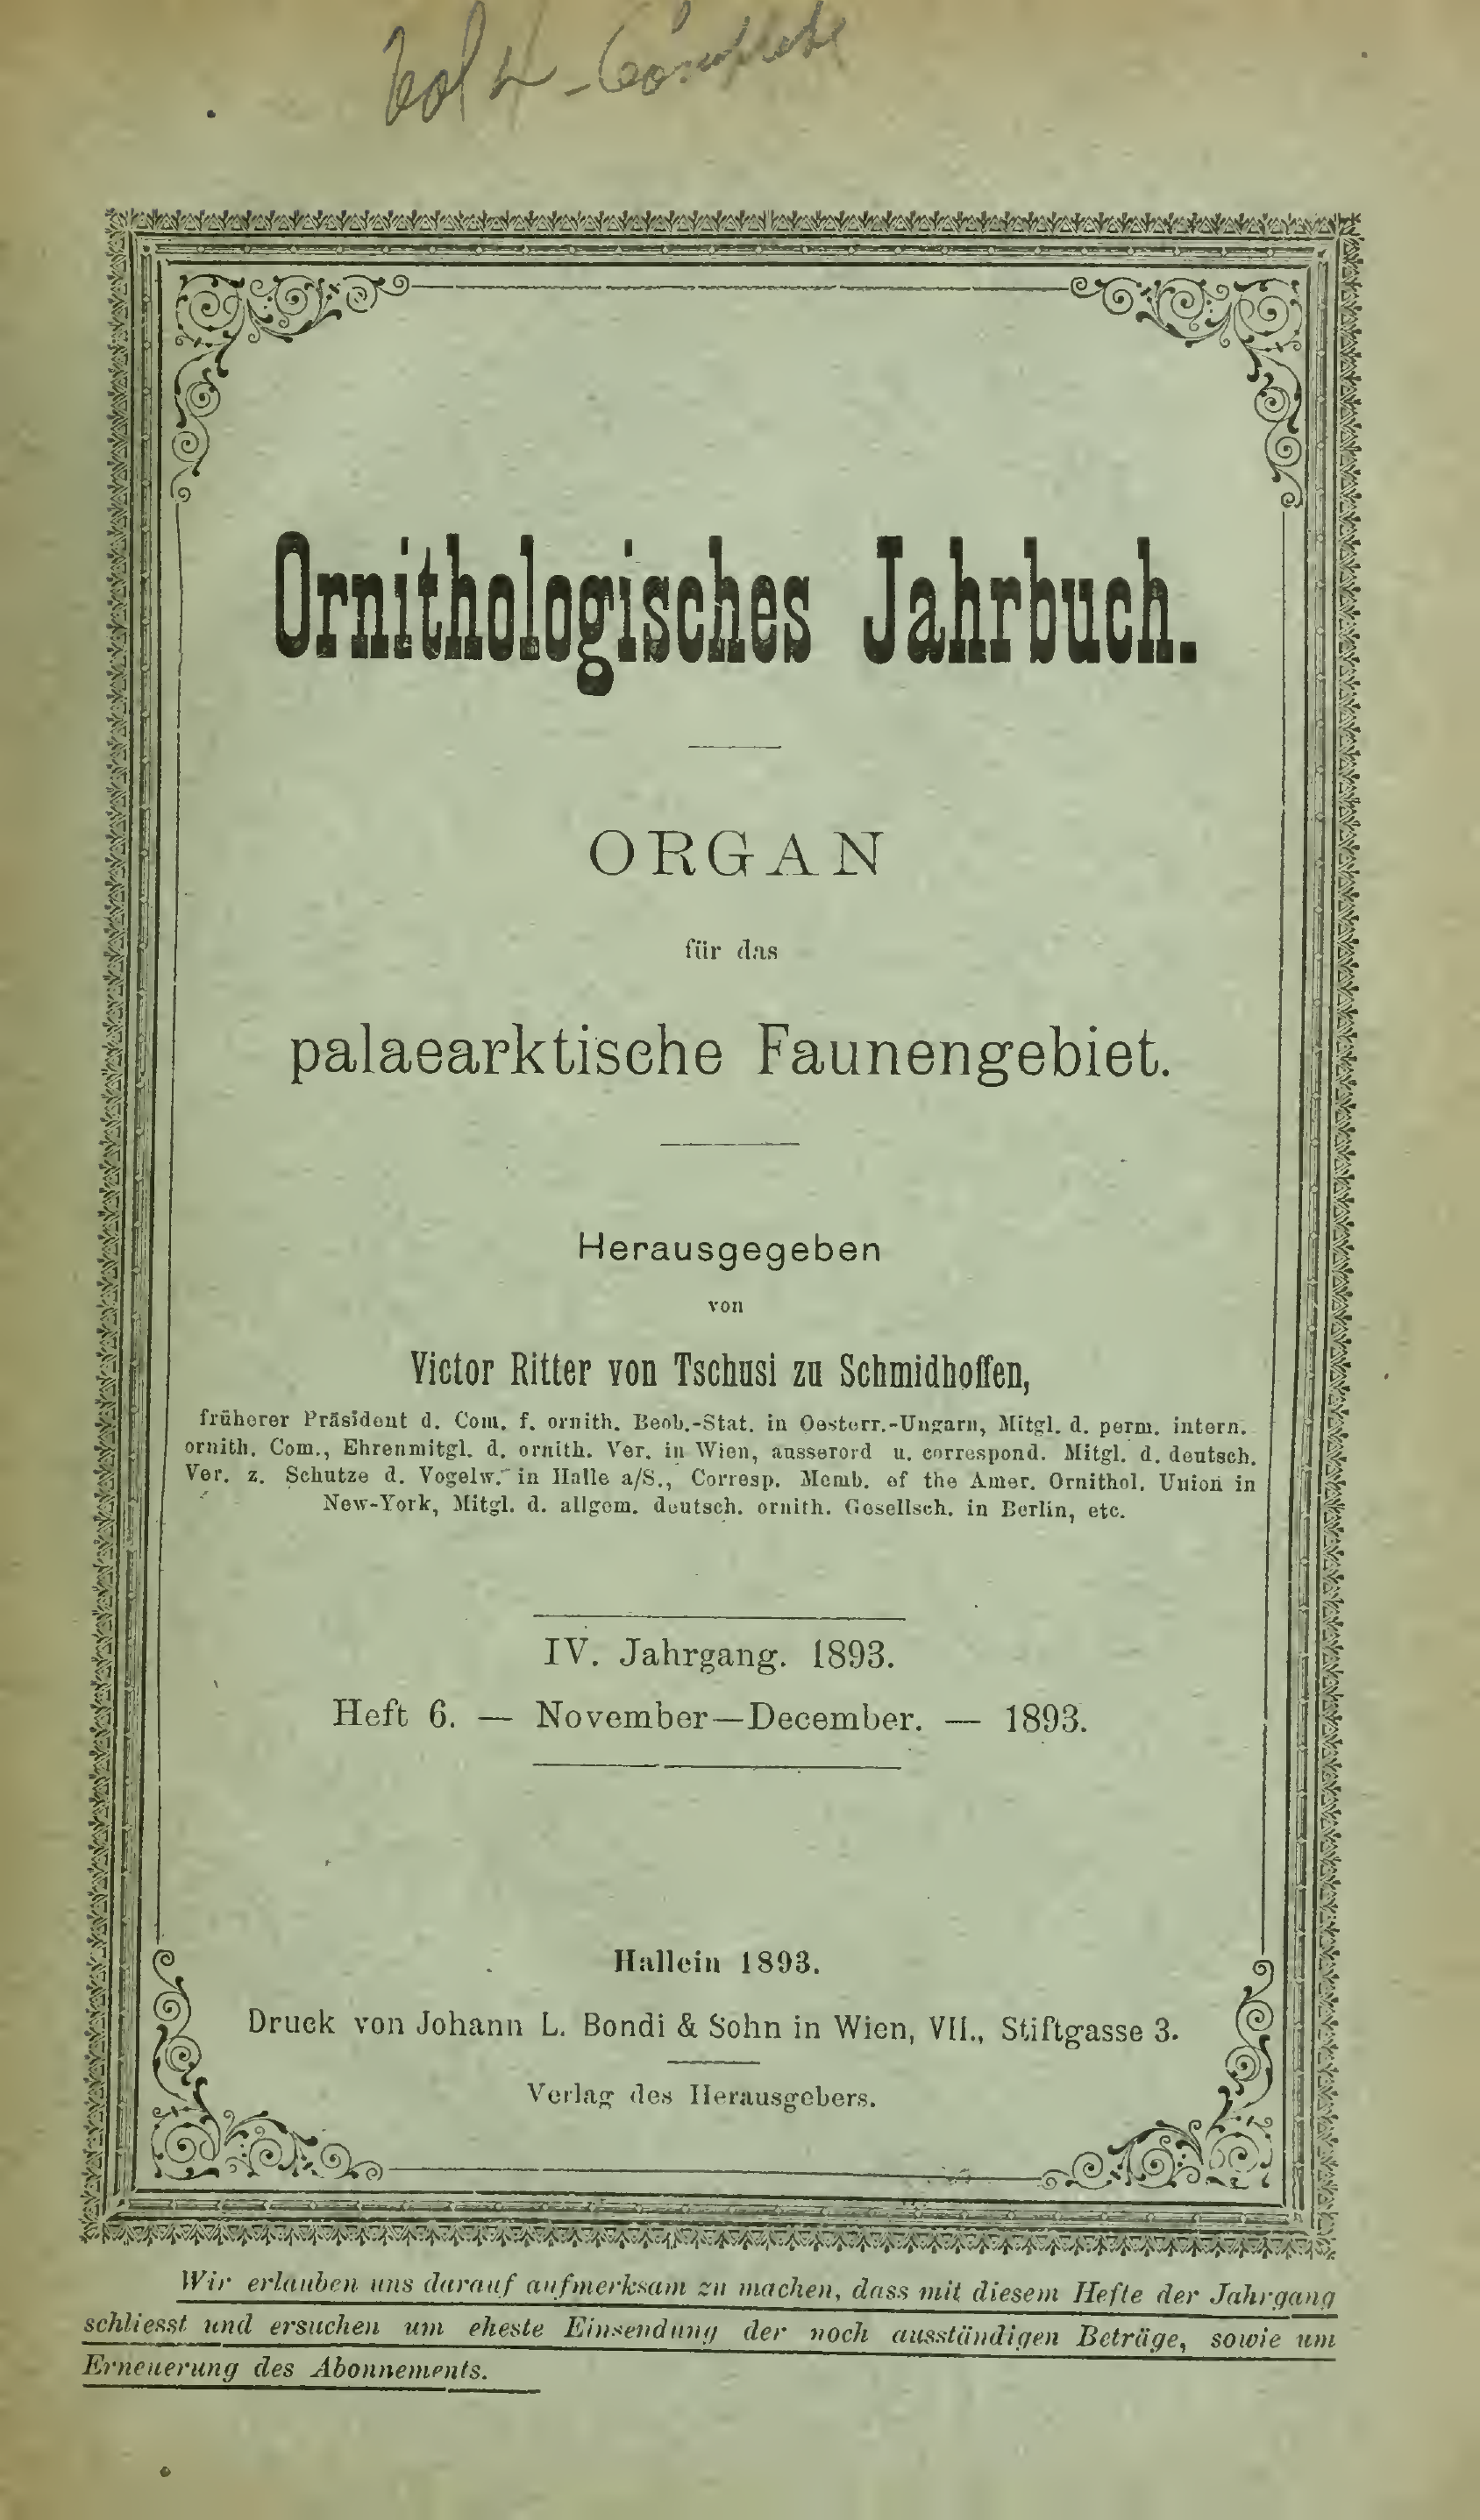 Vol 4 - Complete
Ornithologisches Jahrbuch.
ORGAN
für das
palaearktische Faunengebiet.
Herausgegeben
von
Victor Ritter von Tschusi zu Schmidhoffen,
früherer Präsident d. Com. f. ornith. Beob.-Stat. in Oesterr.-Ungarn, Mitgl. d. perm. intern.
ornith. Com., Ehrenmitgl. d. ornith. Ver. in Wien, ausserord u. correspond. Mitgl. d. deutsch.
Ver. z. Schutze d. Vogelw. in Halle a/S., Corresp. Memb. of the Amer. Ornithol. Union in
New-York, Mitgl. d. allgem. deutsch. ornith. Gesellsch. in Berlin, etc.
IV. Jahrgang. 1893.
Heft 6. — November—December. — 1893.
Hallein 1893.
Druck von Johann L. Bondi & Sohn in Wien, VII., Stiftgasse 3.
Verlag des Herausgebers.
Wir erlauben uns darauf aufmerksam zu machen, dass mit diesem Hefte der Jahrgang
schliesst und ersuchen um eheste Einsendung der noch ausständigen Beträge, sowie um
Erneuerung des Abonnements.